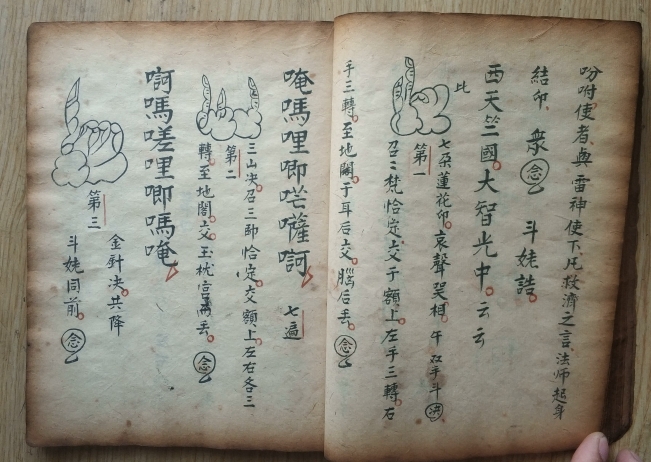 吩咐使者與雷神使下凡救濟之言法師起身
結印、眾念 斗姥誥
西天竺國大智光中云云
比
七朵蓮花印哀聲哭相午 双手斗决
第一
召三梵恰定交于額上左手三轉右
手三轉至地閣于耳后交腦后丢念
唵嗎哩唧𠵇囉訶 七遍
三山决召三卽恰定交額上左右各三
第二
轉至地閣交玉枕宮丢念
訶嗎嗟哩唧嗎唵
第三
金針决共降
斗姥同前念